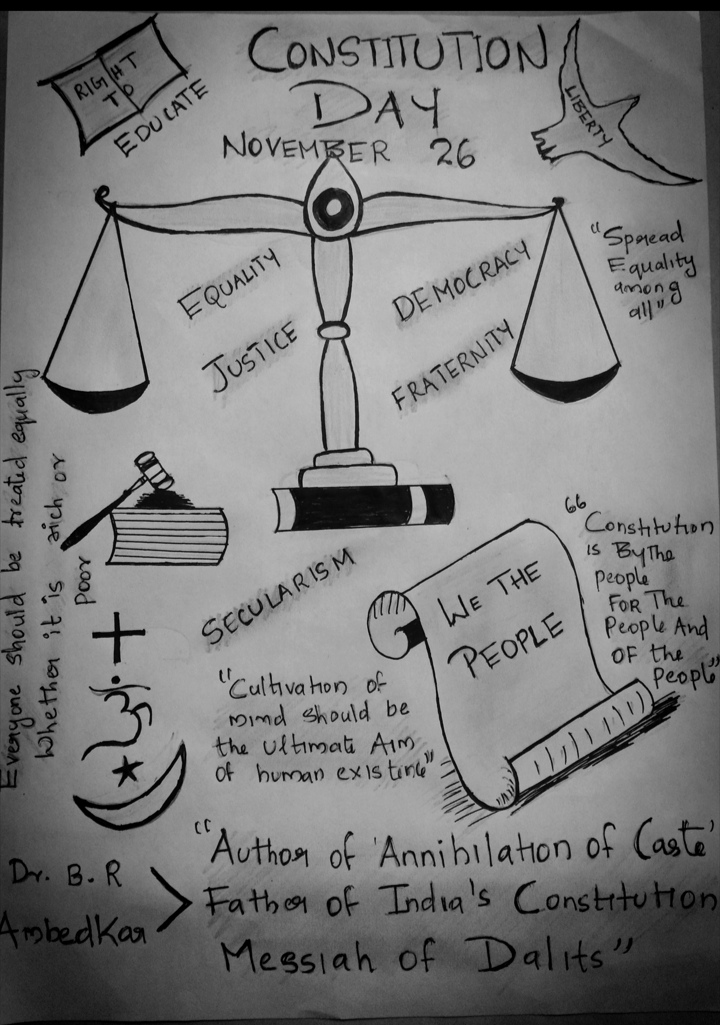 RIGHT
TO
EDUCATE
CONSTITUTION
DAY
NOVEMBER 26
LIBERTY
"Spread
Equality
among
all"
EQUALITY
JUSTICE
DEMOCRACY
FRATERNITY
Everyone should be treated equally
Whether it is rich or
poor
SECULARISM
WE THE
PEOPLE
"Constitution
is By The
people
FOR The
People And
OF the
People"
"Cultivation of
mind should be
the ultimate Aim
of human existence"
Dr. B.R
Ambedkar
"Author of 'Annihilation of Caste'
Father of India's Constitution
Messiah of Dalits"